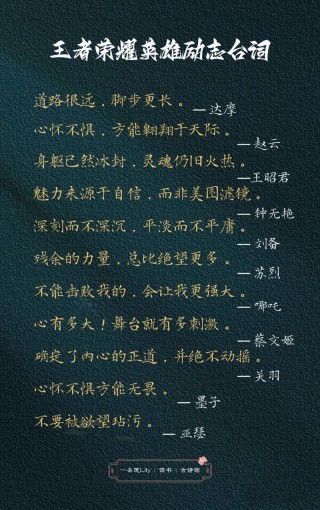 王者荣耀英雄励志台词
道路很远，脚步更长。
—达摩
心怀不惧，方能翱翔于天际。
—赵云
身躯已然冰封，灵魂仍旧火热。
—王昭君
魅力来源于自信，而非美图滤镜。
—钟无艳
深刻而不深沉，平淡而不平庸。
—刘备
残余的力量，总比绝望更多。
—苏烈
不能击败我的，会让我更强大。
—哪吒
心有多大！舞台就有多刺激。
—蔡文姬
确定了内心的正道，并绝不动摇。
—关羽
心怀不惧方能无畏。
—墨子
不要被欲望玷污。
—亚瑟